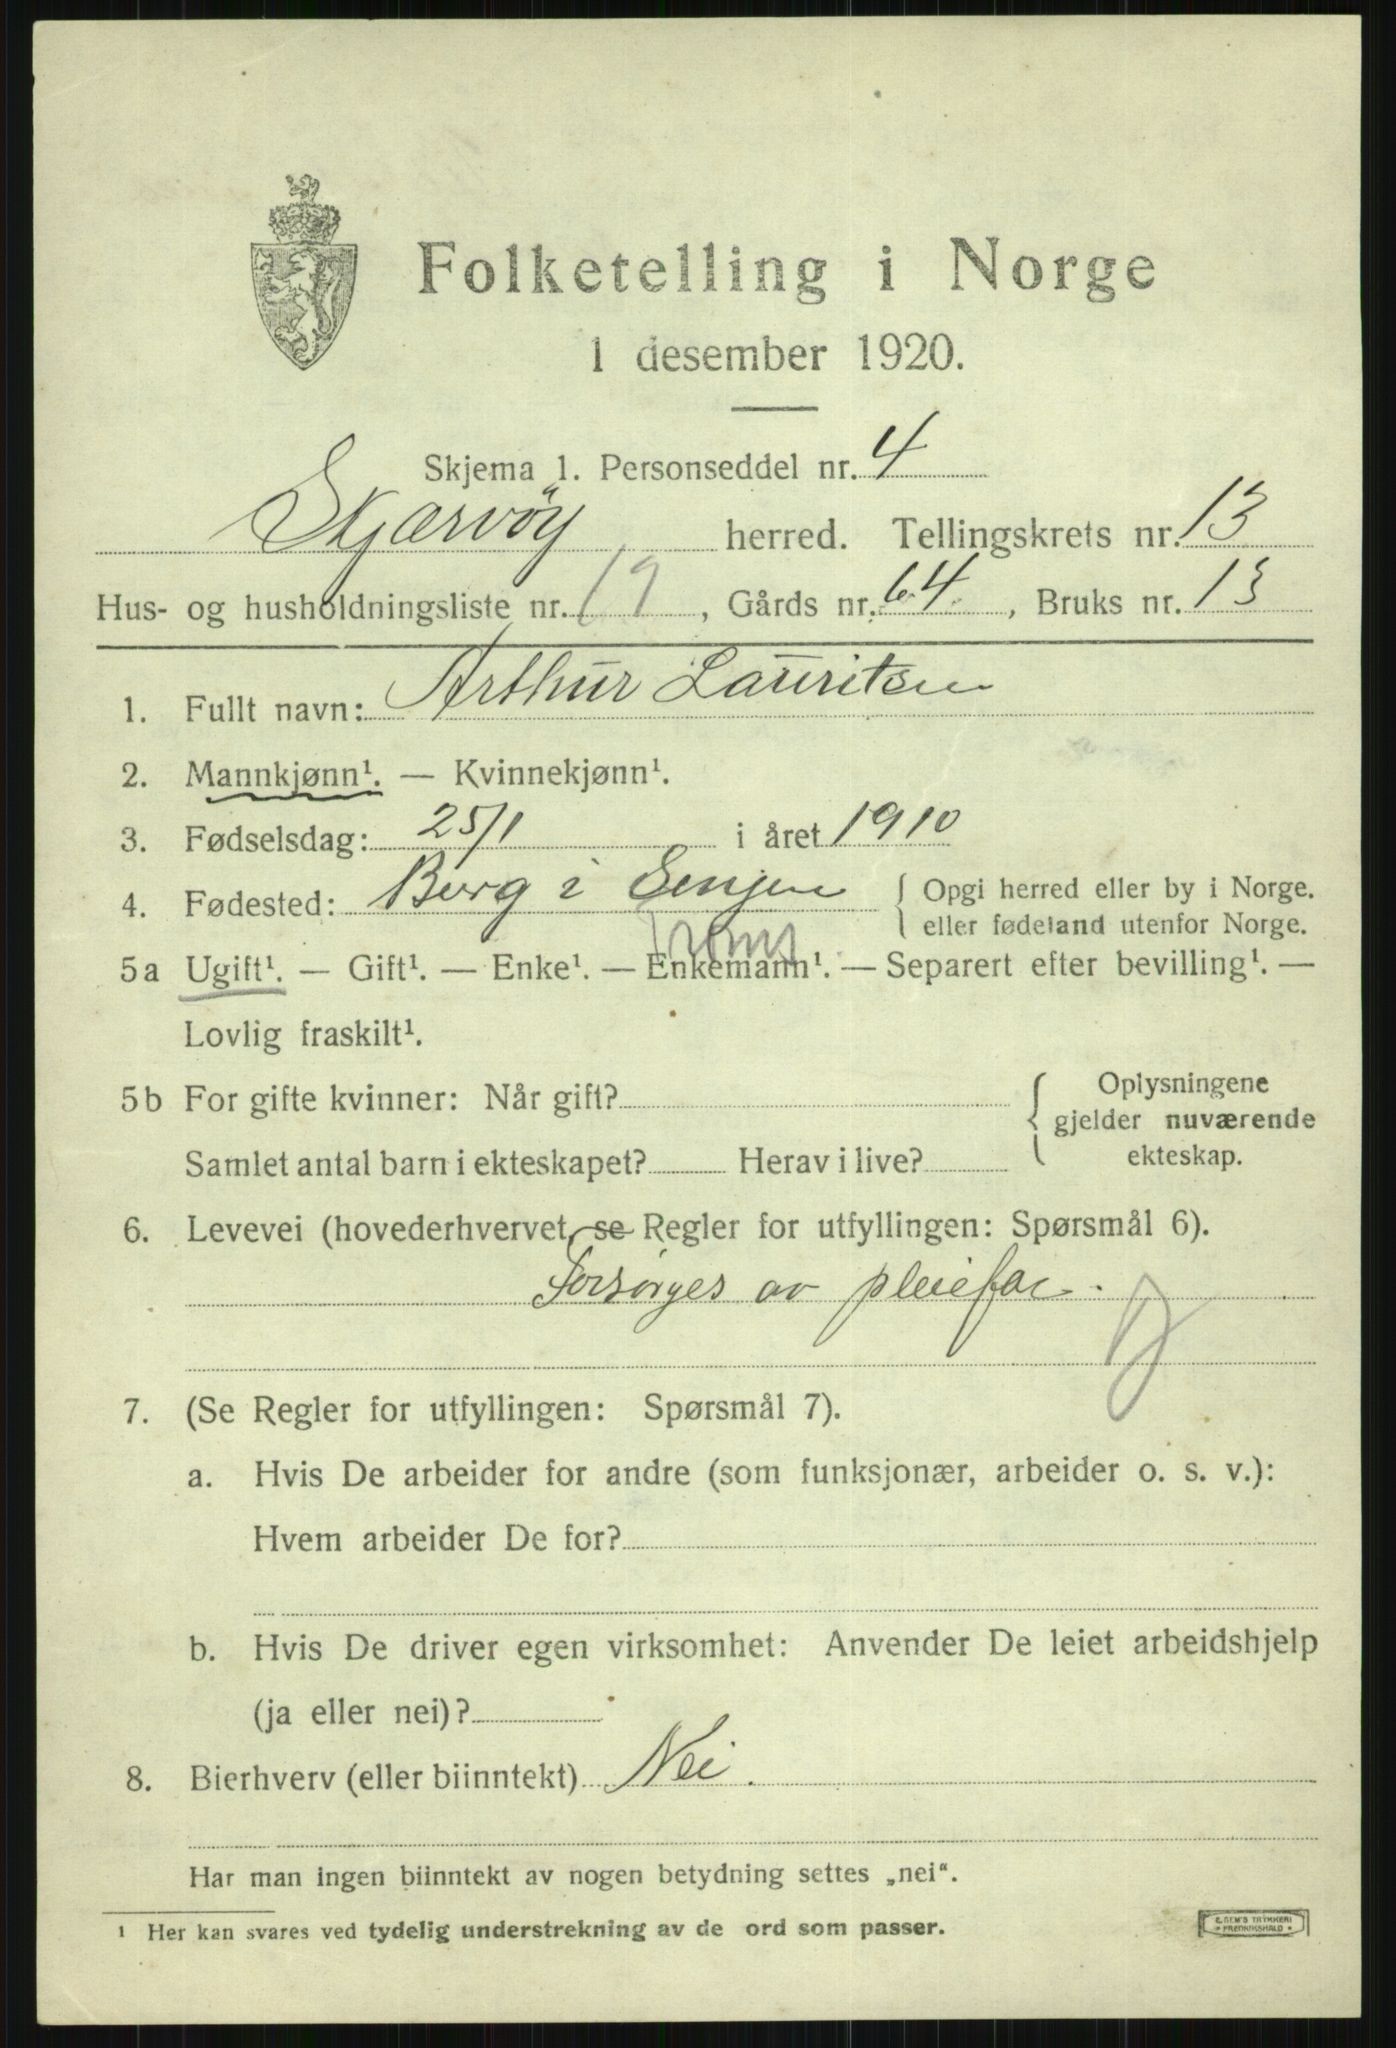 Folketelling i Norge
1 desember 1920.
Skjema 1. Personseddel nr. 4
Skjærvöy herred. Tellingskrets nr. 13
Hus- og husholdningsliste nr. 19, Gårds nr. 64, Bruks nr. 13
1. Fullt navn: Arthur Lauritsen
2. Mannkjønn¹. — Kvinnekjønn¹.
3. Fødselsdag: 25/1 i året 1910
4. Fødested: Berg i Senjen { Opgi herred eller by i Norge.
eller fødeland utenfor Norge.
Troms
5a Ugift¹. — Gift¹. — Enke¹. — Enkemann¹. — Separert efter bevilling¹. —
Lovlig fraskilt¹.
5b For gifte kvinner: Når gift? { Oplysningene
gjelder nuværende
ekteskap.
Samlet antal barn i ekteskapet? Herav i live?
6. Levevei (hovederhvervet, se Regler for utfyllingen: Spørsmål 6).
Forsørges av pleiefar.
7. (Se Regler for utfyllingen: Spørsmål 7).
a. Hvis De arbeider for andre (som funksjonær, arbeider o. s. v.):
Hvem arbeider De for?
b. Hvis De driver egen virksomhet: Anvender De leiet arbeidshjelp
(ja eller nei)?
8. Bierhverv (eller biinntekt) Nei.
Har man ingen biinntekt av nogen betydning settes „nei“.
¹ Her kan svares ved tydelig understrekning av de ord som passer.
E. SEM'S TRYKKERI
FREDRIKSHALD